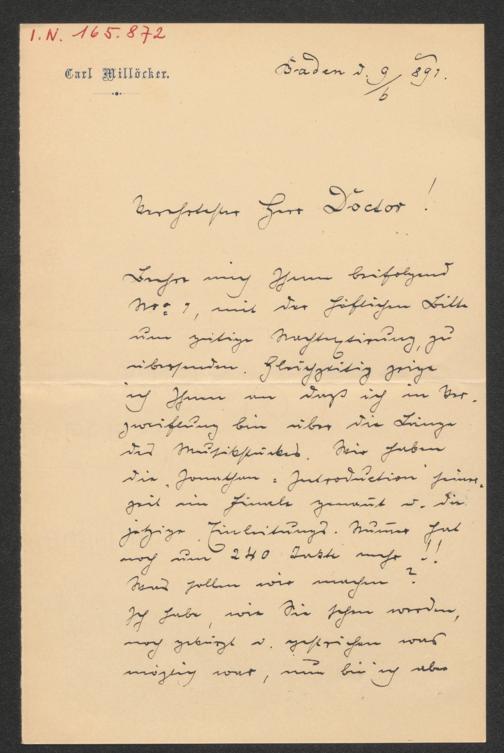 I.N. 165.872
Carl Millöcker.
Baden d. 9/6 891.
Verehrtester Herr Doctor!
Beehre mich Ihnen beifolgend
Nro 1, mit der höflichen Bitte
um gütige Nachtextirung, zu
übersenden. Gleichzeitig zeige
ich Ihnen an daß ich in Ver-
zweiflung bin über die Länge
des Musikstückes. Wir haben
die „Jonathan"-Introduction seiner-
zeit ein Finale genannt u. die
jetzige Einleitungs-Numer hat
noch um 240 Takte mehr!!
Was sollen wir machen?
Ich habe, wie Sie sehen werden,
noch gekürzt u. gestrichen was
möglich war, nun bin ich aber